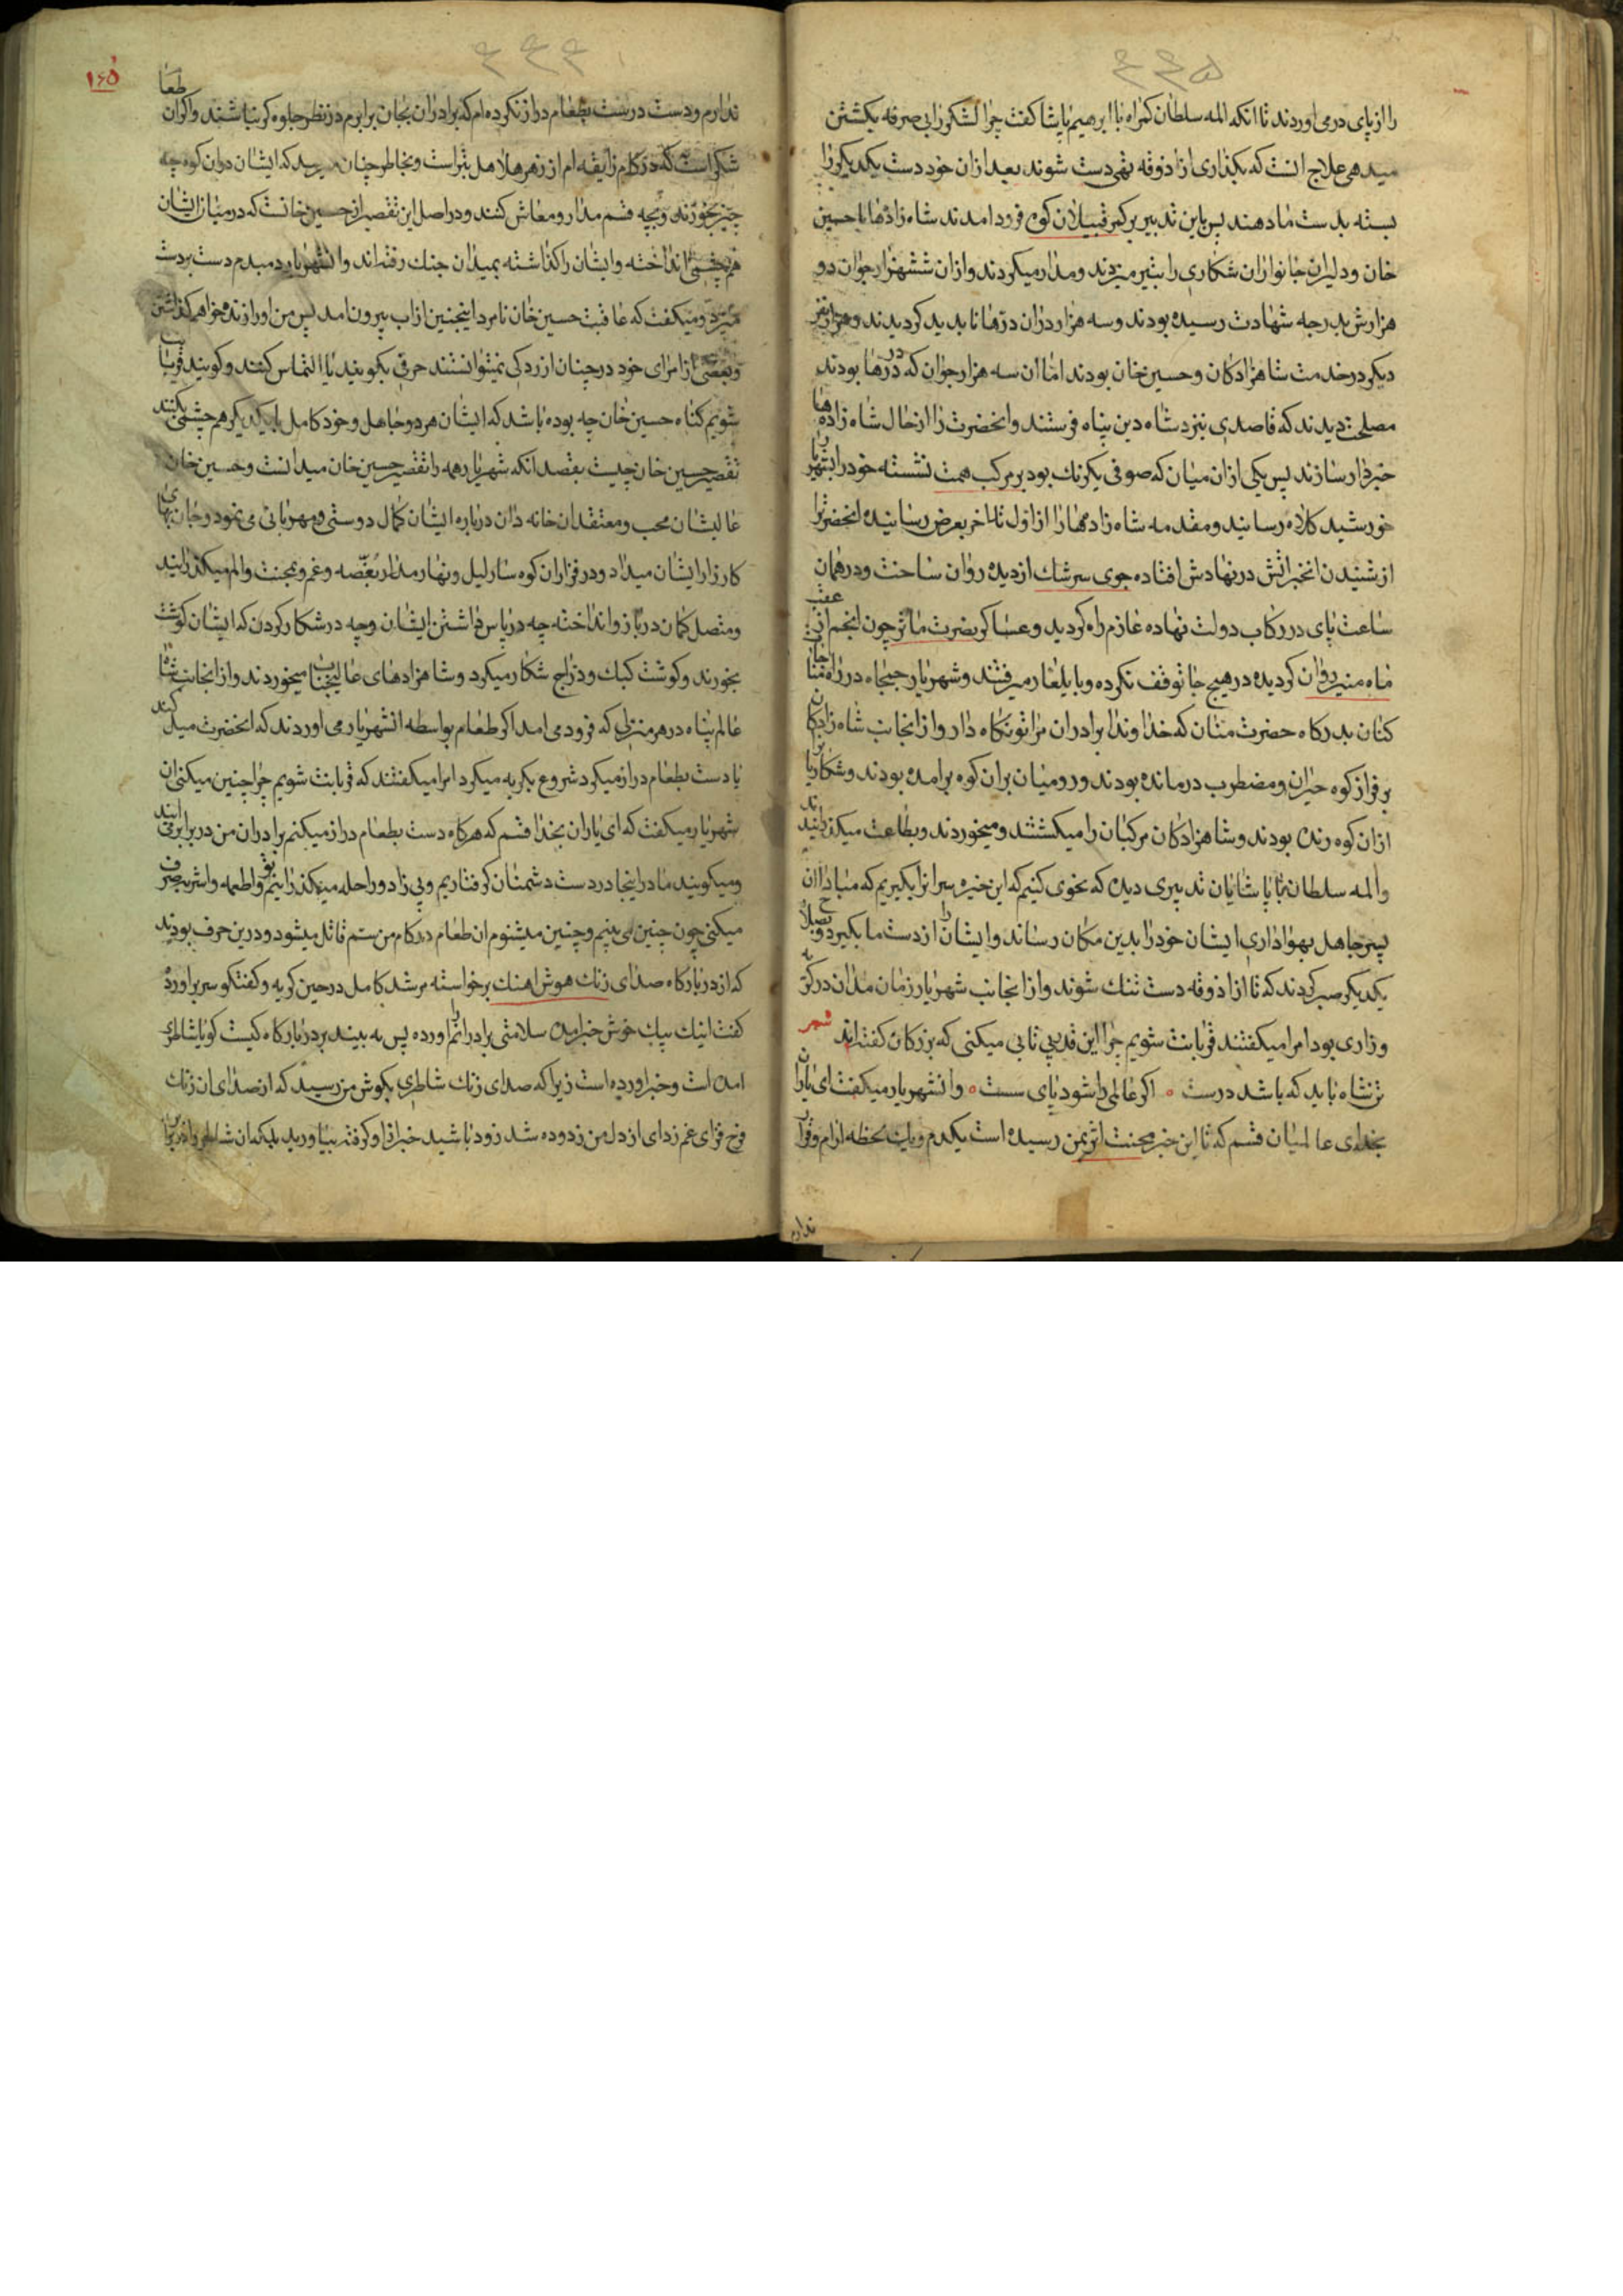 ۴۴۵
را از پای در می اوردند تا انکه المه سلطان کمراه با ابرهیم پاشا کفت چرا لشکر را بی صرفه بکشتن
میدهی علاج انست که بکذاری از اذوقه تهی دست شوند بعد ازان خود دست یکدیکر را
بسته بدست ما دهند پس باین تدبیر بر کمر قبیلان کوه فرود امدند شاه زادها با حسین
خان و دلیران جانوران شکاری را بتیر میزدند و مدار میکردند و ازان ششهزار جوان دو
هزارش بدرجه شهادت رسیده بودند و سه هزار دران درها ناپدید کردیدند و هزار نفر
دیکر در خدمت شاهزادکان و حسین خان بودند اما ان سه هزار جوان که در درها بودند
مصلحت دیدند که قاصدی بنزد شاه دین پناه فرستند و انحضرت را از حال شاه زاده ها
خبردار سازند پس یکی ازان میان که صوفی یکرنك بود بر مرکب همت نشسته خود را بشهریار
خورشید کلاه رسانید و مقدمه شاه زادهها را از اول تا اخر بعرض رسانیده انحضرت را
از شنیدن انخبر اتش در نهادش افتاده جوی سرشك از دیده روان ساخت و در همان
ساعت پای در رکاب دولت نهاده عازم راه کردید و عساکر نصرت ماثر چون انجم از عقب
ماه منیر روان کردیده در هیچ جا توقف نکرده و بایلغار میرفتند و شهریار جمجاه در راه مناجات
کنان بدرکاه حضرت منان که خداوندا برادران مرا تو نکاه دار و از انجانب شاه زادکان
بر فراز کوه حیران و مضطرب درمانده بودند و رومیان بران کوه برامده بودند و شکار را
ازان کوه رنده بودند و شاهزادکان مرکبان را میکشتند و میخوردند و بطاعت میکذرانیدند
و المه سلطان با پاشایان تدبیری دیده که نحوی کنیم که این خیره سرانرا بکیریم که مبادا ان
پسر جاهل بهواداری ایشان خود را بدین مکان رساند و ایشان را از دست ما بکیرد و بصلاح
یکدیکر صبر کردند که تا از اذوقه دست تنك شوند و از انجانب شهریار زمان مدان در کریه
و زاری بود امرا میکفتند قربانت شویم چرا این قدر بی تابی میکنی که بزرکان کفته اند شعر
تن شاه باید که باشد درست ه اکر عالمی را شود پای سست ه و انشهریار میکفت ای یاران
بخدای عالمیان قسم که تا این خبر محنت اثر بمن رسیده است یکدم و یك لحظه ارام و قرار
ندارم
۴۴۴
۱۶۵
ندارم و دست درست بطعام دراز نکرده ام که برادران بجان برابرم در نظر جلوه کر نباشند و اکر ان طعا
شکر است که در کام ذایقه ام از زهر هلاهل بتر است و بخاطر چنان میرسد که ایشان دران کوه چه
چیز بخورند و بچه قسم مدار و معاش کنند و در اصل این تقصیر از حسین خانست که در میان ایشان
هم چشمی انداخته و ایشان را کذاشته بمیدان جنك رفته اند و انشهریار دمبدم دست بردست
میزد و میکفت که عاقبت حسین خان نامرد اینچنین از اب بیرون امد پس من او را زنده نخواهم کذاشت
و بعضی از امرای خود در چنان ازردکی نمیتوانستند حرفی بکویند یا التماس کنند و کویند قربانت
شویم کناه حسین خان چه بوده باشد که ایشان هر دو جاهل و خود کامل با یکدیکر هم چشمی بکنند
تقصیر حسین خان چیست بقصد انکه شهریار همه را تقصیر حسین خان میدانست و حسین خان
عالیشان محب و معتقد ان خانه دان درباره ایشان کمال دوستی و مهربانی می نمود و جان بهای
کارزار ایشان میداد و در فراز ان کوه سار لیل و نهار مدار بغصه و غم و محنت و الم میکذرانید
و متصل کمان در بازو انداخته چه در پاس داشتن ایشان و چه در شکار کردن که ایشان کوشت
بخورند و کوشت کبك و دراج شکار میکرد و شاهزادهای عالیجناب میخوردند و از انجانب شاه
عالم پناه در هر منزلی که فرود می امد اکر طعام بواسطه انشهریار می اوردند که انحضرت میل کند
تا دست بطعام دراز میکرد شروع بکریه میکرد امرا میکفتند که قربانت شویم چرا چنین میکنی ان
شهریار میکفت که ای یاران بخدا قسم که هرکاه دست بطعام دراز میکنم برادران من در برابر می ایند
و میکویند ما در اینجا در دست دشمنان کرفتاریم و بی زاد و راحله میکذرانیم تو و اطعمه و اشربه صرف
میکنی چون چنین می بینم و چنین میشنوم ان طعام در کام من ستم قاتل میشود و درین حرف بودند
که از در بارکاه صدای زنك هوش اهنك برخواسته مرشد کامل در حین کریه و کفتکو سر براورد
کفت اینك پیك خوش خبر امده سلامتی برادرانم را اورده پس به بیند بر در بارکاه کیست کویا شاطری
امده است و خبر اورده است زیرا که صدای زنك شاطری بکوش من رسید که از صدای ان زنك
فرح فزای غم زدای از دل من زدوده شد زود باشید خبر او کرفته بیاورید بلکه ان شاطر